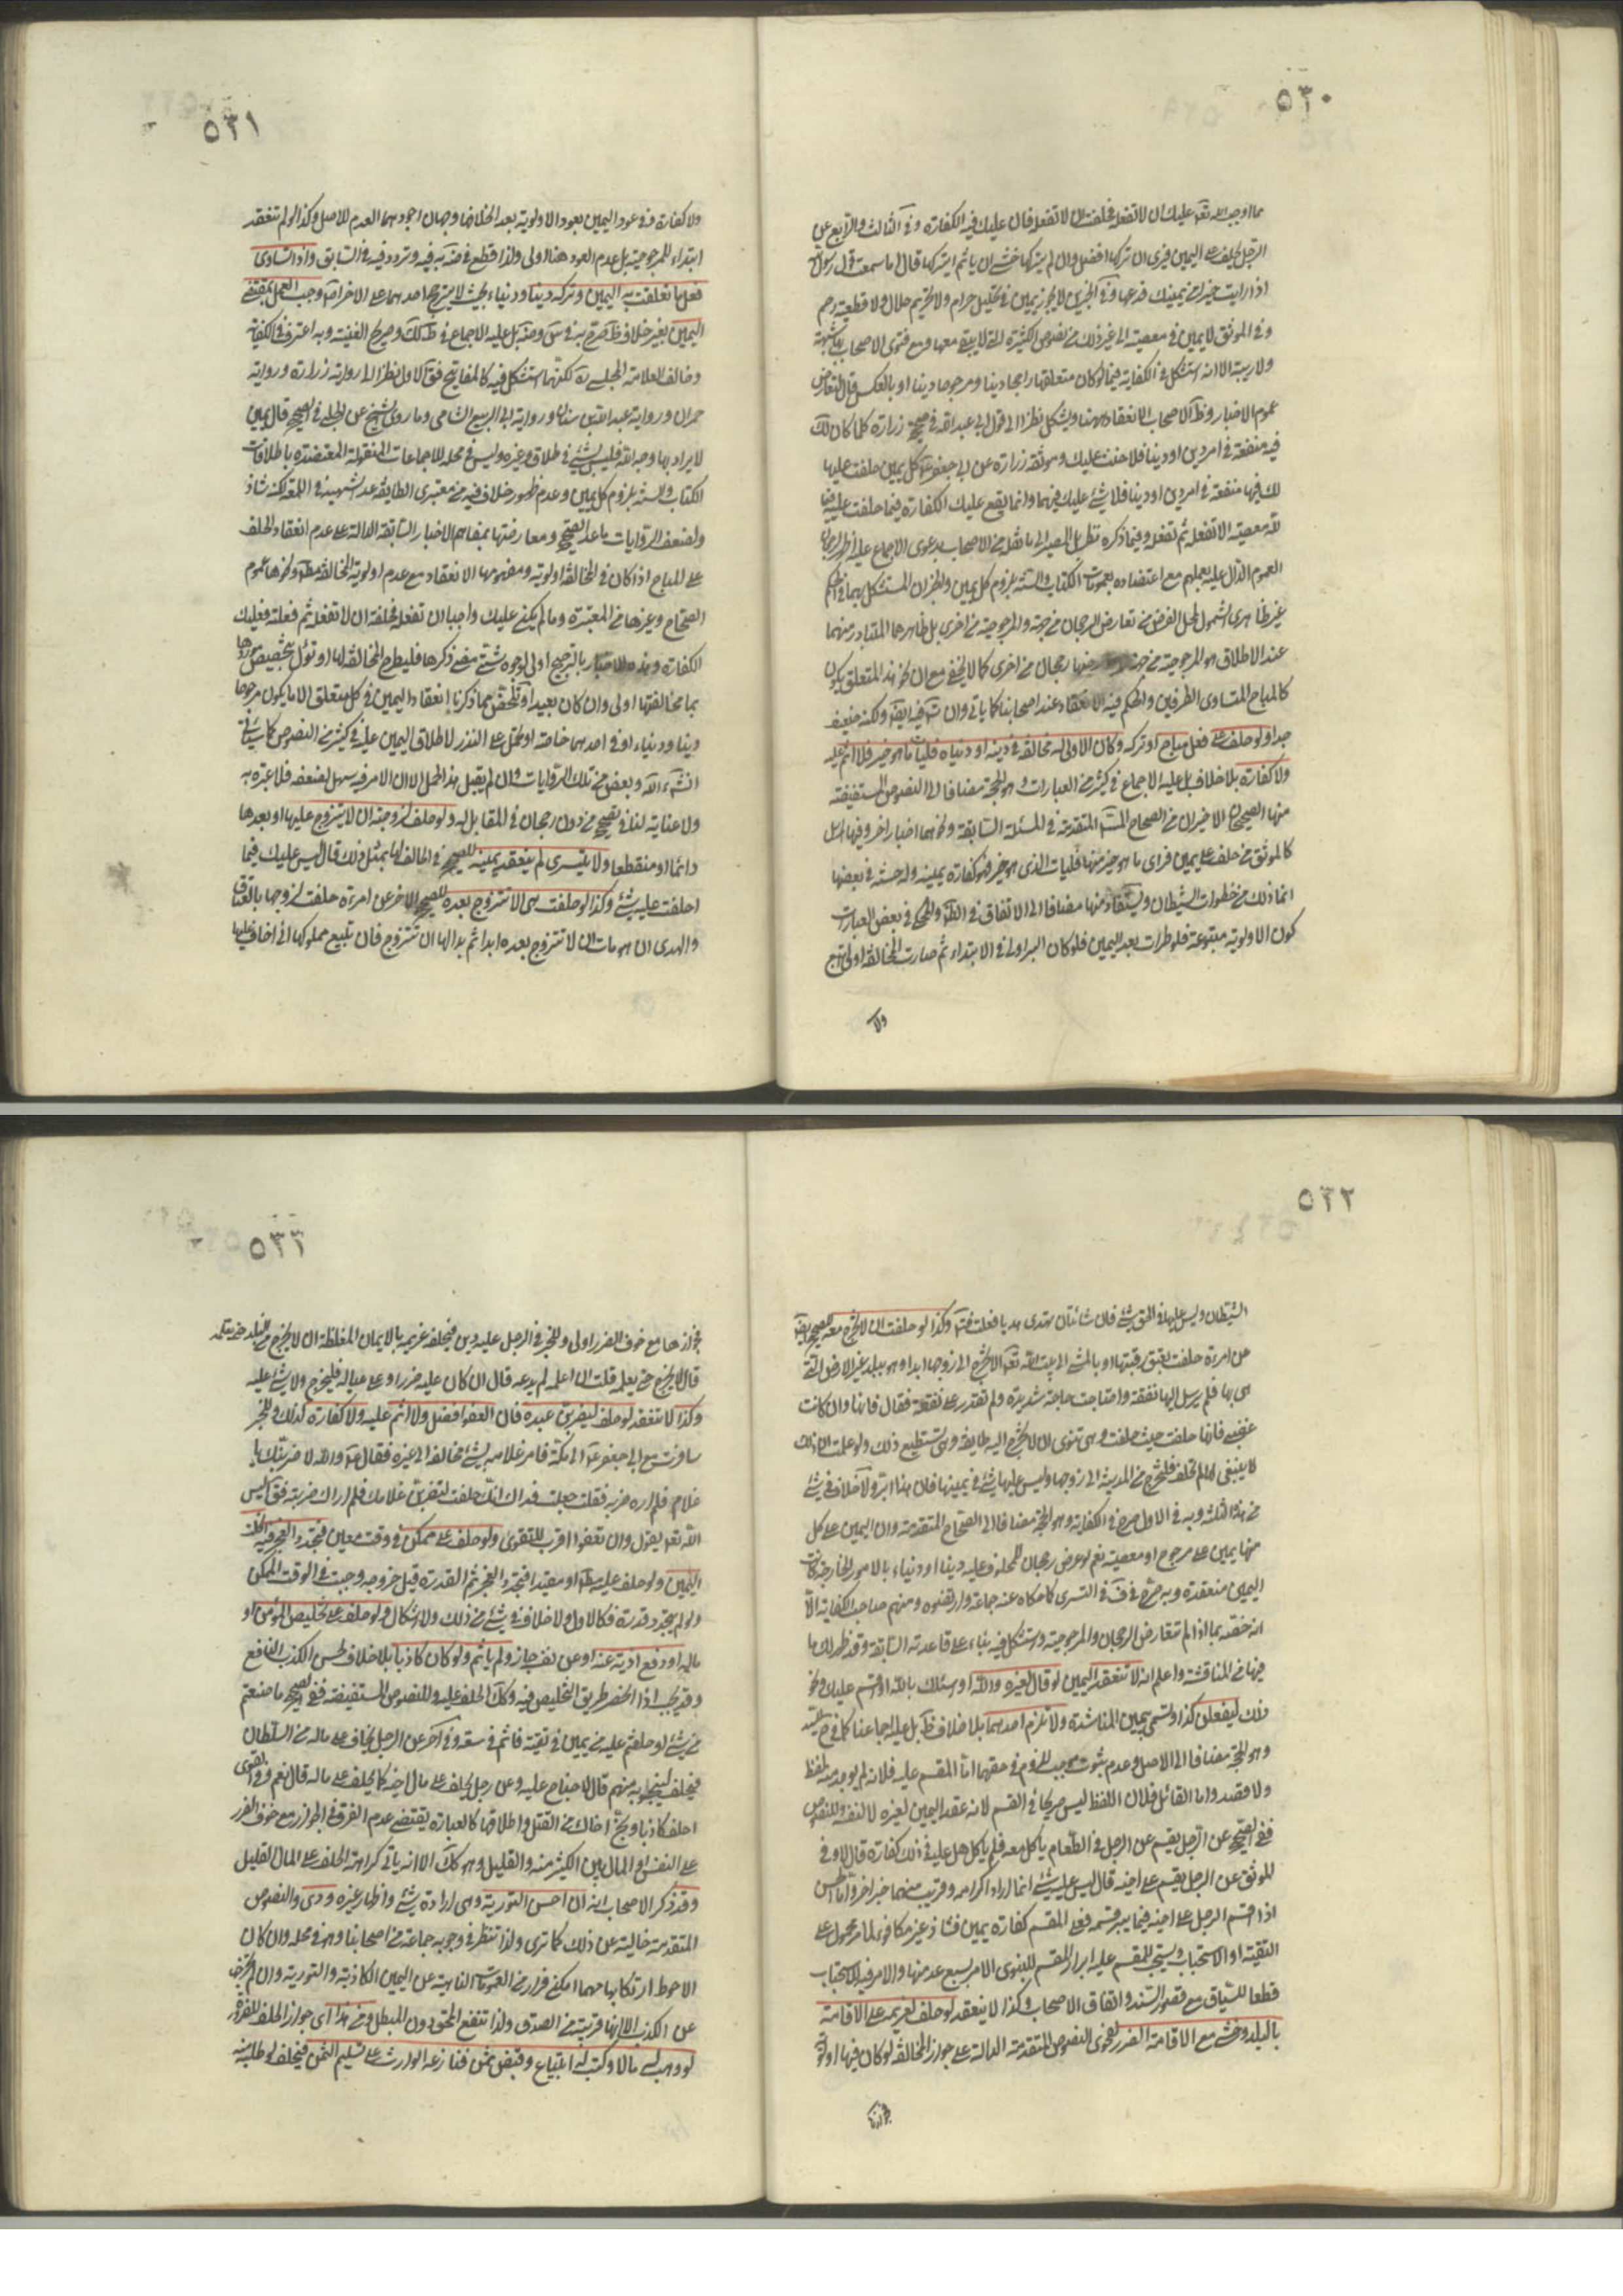 ٥٣٠
مما اوجب الله تعالى عليك ان لا تفعله فحلفت ان لا تفعله قال عليك فيه الكفارة وفي الثالث والرابع عن
الرجل يحلف على اليمين فيرى ان تركها افضل وان لم يتركها خشي ان يأثم ايتركها قال اما سمعت قول رسول
اذا رايت خيرا من يمينك فدعها وفي لا يجوز يمين في تحليل حرام ولا تحريم حلال ولا قطيعة رحم
وفي الموثق لا يمين في معصية الى غير ذلك من النصوص الكثيرة التي لا يبقى معها ومع فتوى الاصحاب شبهة
ولا ريبة الا انه استشكل في الكفاية فيما لو كان متعلقها راجحا دينا ومرجوحا دنيا او بالعكس قال لتعارض
عموم الاخبار وظ الاصحاب الانعقاد ههنا ويشكل نظرا الى قول ابي عبد الله في صحيحة زرارة كلما كان لك
فيه منفعة في امر دين او دنيا فلا حنث عليك وموثقة زرارة عن ابي جعفر كل يمين حلفت عليها
لك فيها منفعة في امر دين او دنيا فلا شئ عليك فيها وانما يقع عليك الكفارة فيما حلفت عليه فيما
لله معصية الا تفعله ثم تفعله وفيما ذكره نظر بل المصير الى ما نقله من الاصحاب بدعوى الاجماع عليه
العموم الدال عليه بعملهم مع اعتضاده بعمومات الكتاب والسنة بلزوم كل يمين والخبران المستشكل بهما في الحكم
غير ظاهري الشمول لمحل الفرض من تعارض الرجحان من جهة والمرجوحية من اخرى بل ظاهرهما المتبادر منهما
عند الاطلاق هو المرجوحية من جهة منها رجحان من اخرى كما لا يخفى مع ان نحو هذا المتعلق يكون
كالمباح المتساوى الطرفين والحكم فيه الانعقاد عند اصحابنا كما ياتي وان فيه ايضا ولكنه ضعيف
جدا ولو حلف على فعل مباح او تركه وكان الاولى له مخالفة في دينه او دنياه فليات ما هو خير فلا اثم عليه
ولا كفارة بلا خلاف بل عليه الاجماع في كثير من العبارات وهو الحجة مضافا الى النصوص المستفيضة
منها الصحيحان الاخيران من الصحاح المتقدمة في المسئلة السابقة ونحوهما اخبار اخر وفيها المرسل
كالموثق من حلف على يمين فراى ما هو خير منها فليات الذى هو خير فهو كفارة يمينه وله حسنة في بعضها
انما ذلك من خطوات الشيطان ويستفاد منها مضافا الى الاتفاق في الظ والمحكى في بعض العبارات
كون الاولوية متبوعة فلو طرات بعد اليمين فلو كان البر اولى في الابتداء ثم صارت المخالفة اولى اتبع
ولا
٥٣١
ولا كفارة وفي عود اليمين بعود الاولوية بعد الخلافها وجهان اجودهما العدم للاصل وكذا لو لم تنعقد
ابتداء للمرجوحية بل عدم العود هنا اولى ولذا قطع في ضه به فيه وتردد فيه في السابق واذا تساوى
فعل ما تعلقت به اليمين وتركه دينا ودنياء بحيث لا يترجح احدهما على الاخر اصلا وجب العمل بمقتضى
اليمين بغير خلاف ظ مصرح به في وضه بل عليه الاجماع في ظ لك وصريح الغنية وبه اعترف في الكفاية
وخالف العلامة المجلسي ره لكنهما استشكل فيه كالمفاتيح فق الاول نظرا الى رواية زرارة ورواية
حمران ورواية عبد الله بن سنان ورواية ابي الربيع الشامى وما روى الشيخ عن الحلبي في الصحيح قال كل يمين
لا يراد بها وجه الله فليس بشئ في طلاق وغيره وليس في محله للاجماعات المنقولة المعتضدة باطلاقات
الكتاب والسنة بلزوم كل يمين وعدم ظهور خلاف فيه من معتبرى الطايفة عدا الشهيد في اللمعة لكنه شاذ
ولضعف الروايات ما عدا الصحيح ومعارضتها بمفاهيم الاخبار السابقة الدالة على عدم انعقاد الحلف
على المباح اذا كان في المخالفة اولوية ومفهومها الانعقاد مع عدم اولوية المخالفة مط ونحوها عموم
الصحاح وغيرها من المعتبرة وما لم يكن عليك واجبا ان تفعله فحلفت ان لا تفعله ثم فعلته فعليك
الكفارة وهذه الاخبار بالترجيح اولى لوجوه شتى مضى ذكرها فليطرح المخالفة لها او تؤل بتخصيص موردها
بما مخالفتها اولى وان كان بعيدا وتلخص مما ذكرنا انعقاد اليمين في كل متعلق الا ما يكون مرجوحا
دينا ودنياء او في احدهما خاصة او تحمل على النذر لاطلاق اليمين عليه في كثير من النصوص كما سيأتي
انشاء الله وبعض من تلك الروايات وان لم يقبل هذا الحمل الا ان الامر فيه سهل لضعفه فلا عبرة به
ولا عناية لنا في تصحيحه من دون رجحان في المقابل له ولو حلف لزوجته ان لا يتزوج عليها او بعدها
دائما او منقطعا ولا يتسرى لم ينعقد يمينه للصحيح في الحالف لها بمثل ذلك قال ليس عليك فيما
احلفت عليه شئ وكذا لو حلفت هى الا تتزوج بعده للصحيح الاخر عن امرءة حلفت لزوجها بالعتاق
والهدى ان هو مات ان لا تتزوج بعده ابدا ثم بدا لها ان تتزوج فان تبيع مملوكها انى اخاف عليها
٥٣٢
الشيطان وليس عليها في الحق شئ فان شائت ان تهدى هديا فعلت وكذا لو حلفت ان لا يخرج معه للصحيح ايضا
عن امرءة حلفت بعتق رقبتها او بالمشى الى بيت الله تعالى الا تخرج الى زوجها ابدا وهو ببلد غير الارض التى
هى بها فلم يرسل اليها نفقة واحتاجت حاجة شديدة ولم تقدر على نفقة فقال فانها وان كانت
غضبى فانها حلفت حيث حلفت وهى تنوى ان لا تخرج اليه طايعة وهى تستطيع ذلك ولو علمت ان ذلك
لا ينبغى لها لم تحلف فلتخرج من المدينة الى زوجها وليس عليها شئ في يمينها فان هذا ابر ولا خلاف في شئ
من هذا الثلثة وبه في الاول صرح في الكفاية وهو الحجة مضافا الى الصحاح المتقدمة وان اليمين على كل
منها يمين على مرجوح او معصية نعم لو عرض رجحان للمحلوف عليه دينا او دنياء بالامور الخارجة كانت
اليمين منعقدة وبه صرح في ف في التسرى كما حكاه عنه جماعة وارتضوه ومنهم صاحب الكفاية الا
انه خصه بما اذا لم تتعارض الرجحان والمرجوحية واستشكل فيه بناء على قاعدته السابقة وقد ظهر لك ما
فيها من المناقشة واعلم انه لا تنعقد اليمين لو قال لغيره والله او اسئلك بالله او اقسم عليك ونحو
ذلك ليفعلن كذا وتسمى بيمين المناشدة ولا تلزم احدهما بلا خلاف ظ بل عليه اجماعنا كما في شرح السيد
وهو الحجة مضافا الى الاصل وعدم ثبوت موجب للزوم في حقهما اما المقسم عليه فلانه لم يوجد منه لفظ
ولا قصد واما القائل فلان اللفظ ليس صريحا في القسم لانه عقد اليمين لغيره لا لنفسه وللنصوص
ففي الصحيح عن الرجل يقسم على الرجل في الطعام ياكل معه فلم ياكل هل عليه في ذلك كفارة قال لا وفي
الموثق عن الرجل يقسم على اخيه قال ليس عليه شئ انما اراد اكرامه وقريب منهما خبر اخر واما المرسل
اذا اقسم الرجل على اخيه فلم يبر قسمه فعلى المقسم كفارة يمين فشاذ غير مكافؤ لما مر محمول على
التقية او الاستحباب ويستحب للمقسم عليه ابرار القسم للنبوى الامر بسبع عد منها والامر فيه للاستحباب
قطعا للسياق مع قصور السند واتفاق الاصحاب وكذا لا ينعقد لو حلف لغريمه على الاقامة
بالبلد وخشى مع الاقامة الضرر لفحوى النصوص المتقدمة الدالة على جواز المخالفة لو كان فيها اولوية
٥٣٣
فجوازها مع خوف الضرر اولى وللخبر في الرجل عليه دين فيحلفه غريمه بالايمان المغلظة ان لا يخرج من البلد حتى يعلمه
قال لا يخرج حتى يعلمه قلت ان اعلمه لم يدعه قال ان كان عليه ضرر او على عياله فليخرج ولا شئ عليه
وكذا لا تنعقد لو حلف ليضربن عبده فان العفو افضل ولا اثم عليه ولا كفارة لذلك وللخبر
سافرت مع ابي جعفر الى مكة فامر غلامه بشئ فخالفه الى غيره فقال والله لاضربنك يا
غلام فلم اره ضربه فقلت جعلت فداك انك حلفت لتضربن غلامك فلم اراك ضربته فق اليس
الله تعالى يقول وان تعفوا اقرب للتقوى ولو حلف على ممكن في وقت معين فتجدد العجز فيه انحلت
اليمين ولو حلف عليه مط او مقيدا فتجدد العجز ثم القدرة قبل خروجه وجبت في الوقت الممكن
ولو لم يتجدد قدرة فكالاول ولا خلاف في شئ من ذلك ولا اشكال ولو حلف على تخليص المؤمن او
ماله او دفع اذية عنه او عن نفسه جاز ولم يأثم ولو كان كاذبا بلا خلاف لحسن الكذب النافع
وقد يجب اذا انحصر طريق التخليص فيه وكك الحلف عليه وللنصوص المستفيضة ففي الصحيح ما صنعتم
من شئ او حلفتم عليه من يمين في تقية فانتم في سعة وفي اخر عن الرجل يخاف على ماله من السلطان
فيحلف لينجو به منهم قال لا جناح عليه وعن رجل يحلف على مال اخيه كما يحلف على ماله قال نعم وفي القوى
احلف كاذبا ونج اخاك من القتل واطلاقها كالعبارة يقتضى عدم الفرق في الجواز مع خوف الضرر
على النفس او المال بين الكثير منه والقليل وهو كك الا انه ياتي كراهة الحلف على المال القليل
وقد ذكر الاصحاب انه ان احسن التورية وهى ارادة شئ واظهار غيره ورى والنصوص
المتقدمة خالية عن ذلك كما ترى ولذا تنظر في وجوبه جماعة من اصحابنا وهو في محله وان كان
الاحوط ارتكابها مهما امكن فرارا من العمومات الناهية عن اليمين الكاذبة والتورية وان لم تخرج
عن الكذب الا انها قريبة من الصدق ولذا تنفع المحق دون المبطل ومن هذا اى جواز الحلف للضرر
لو وهب له مالا وكتب له ابتياع وقبض ثمن فنازعه الوارث على تسليم الثمن فيحلف لو طالبته